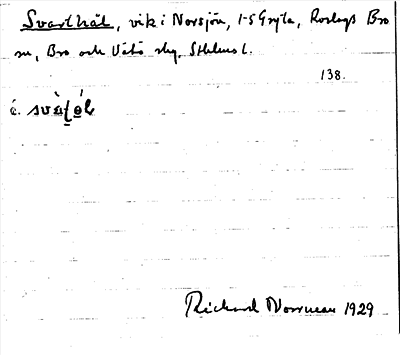 Svarthål, vik i Norsjön, 1-5 Gryta, Roslags Bro
sn, Bro och Vätö skg, Sthlms l.
138.
Richard Norrman 1929